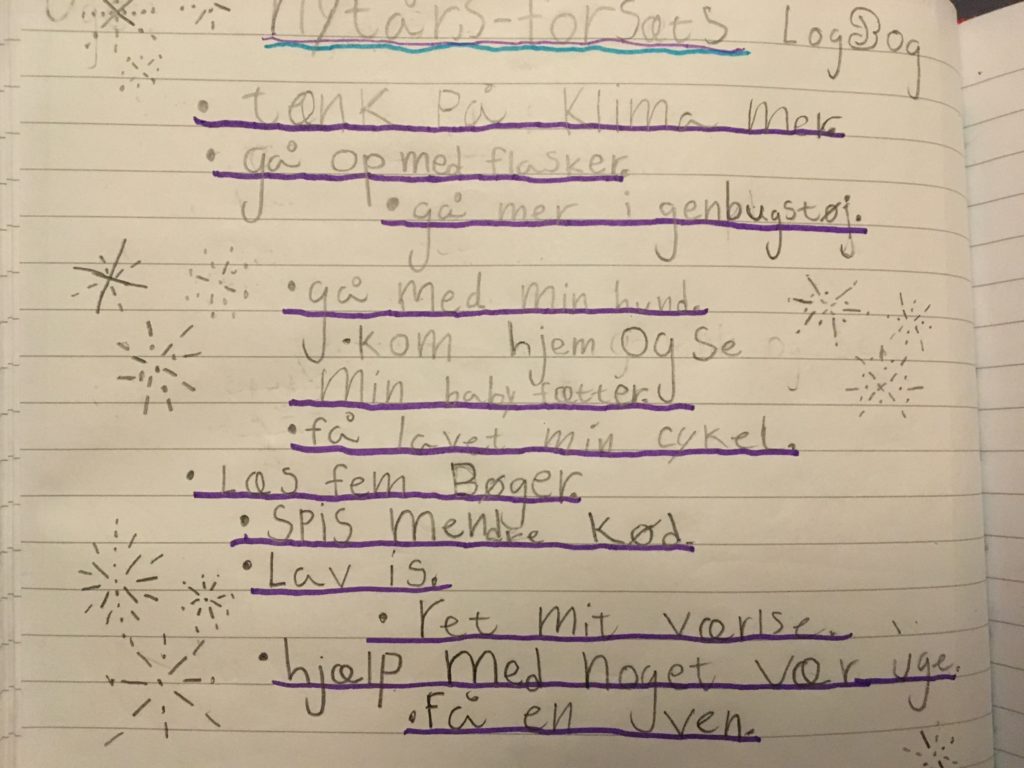 Nytårs-forsæts LogBog
• tænk på Klima mer.
• gå op med flasker.
• gå mer i genbugstøj.
• gå med min hund.
• kom hjem og se
min baby fætter.
• få lavet min cykel.
• Læs fem Bøger.
• SPiS mendre kød.
• Lav is.
• ret mit værlse.
• hjælp med noget vær uge.
• få en ven.